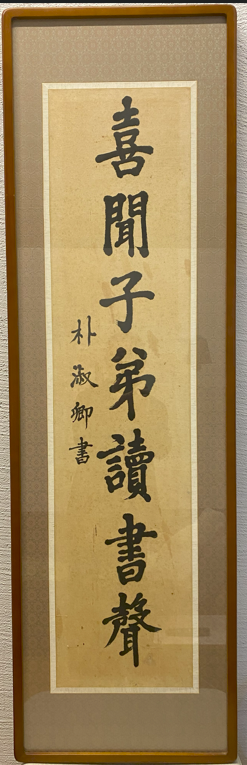 喜聞子弟讀書聲
朴淑卿書